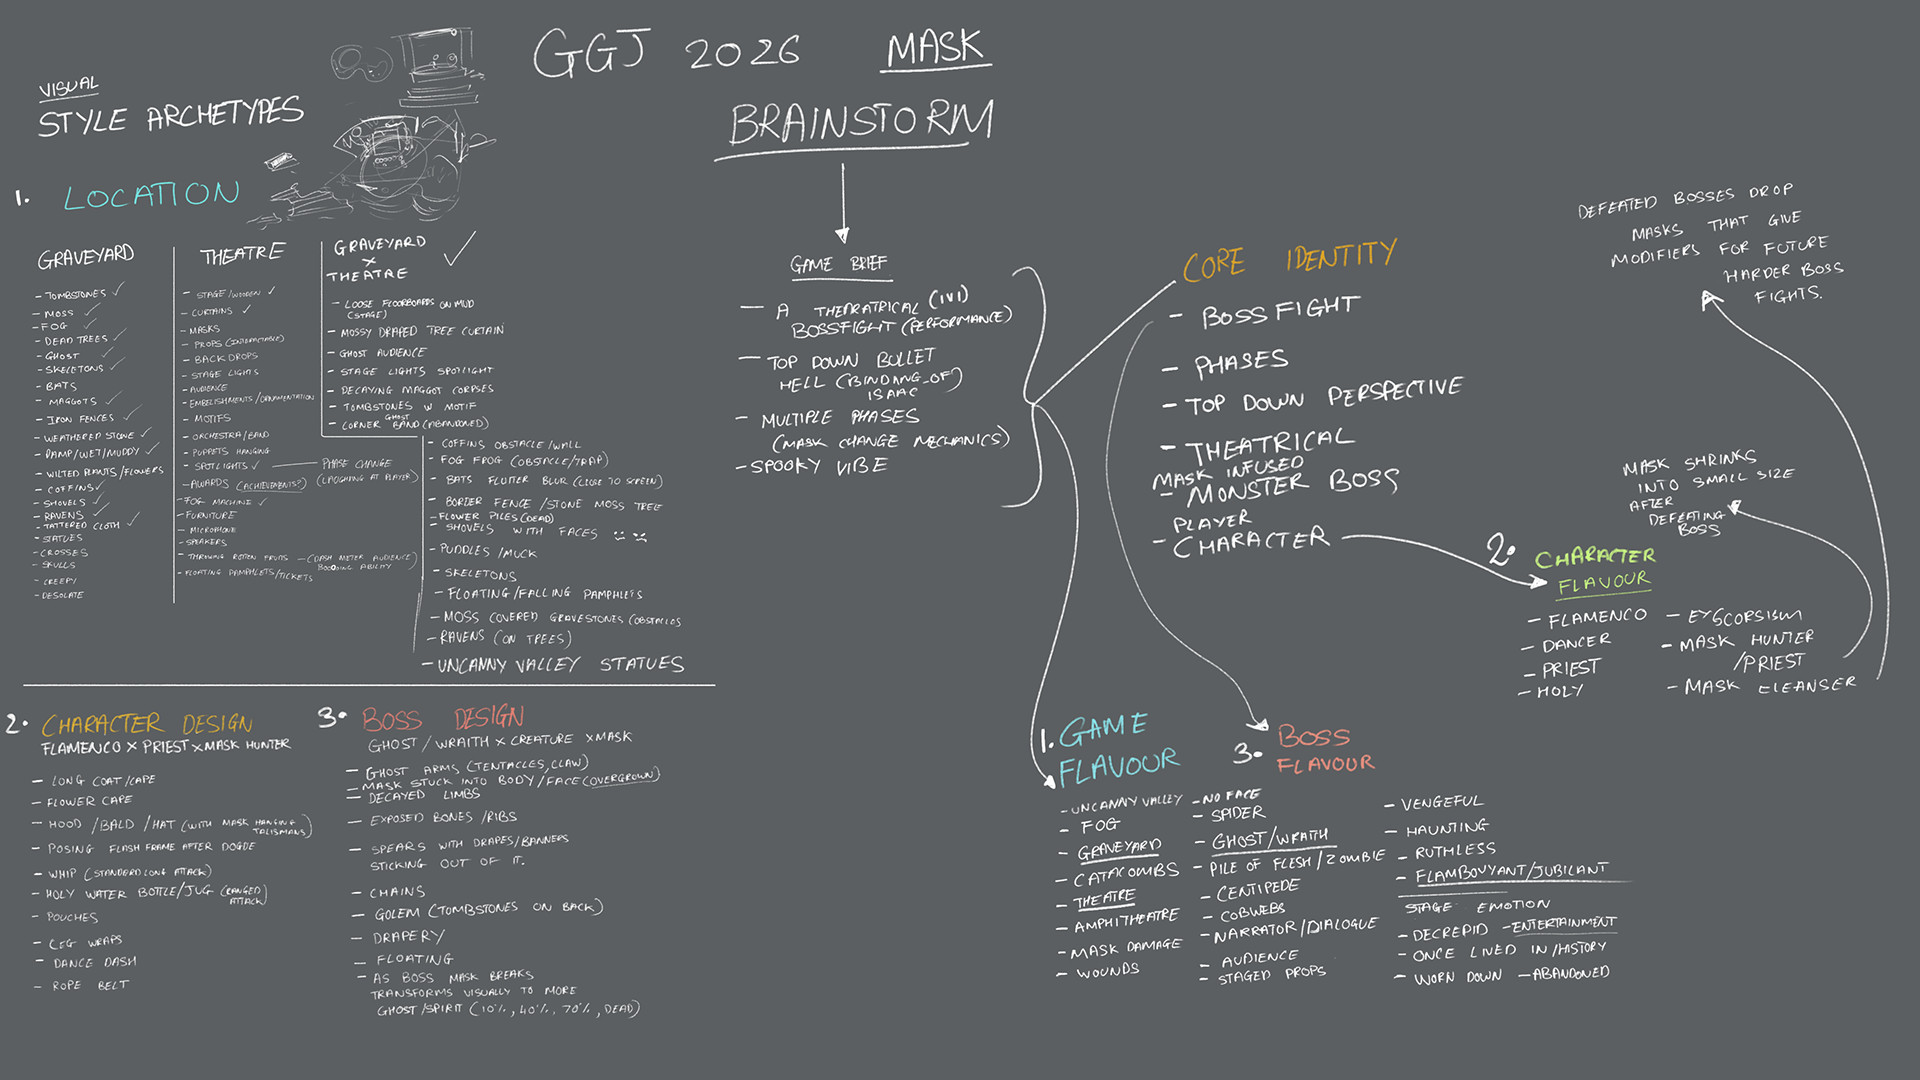 GGJ 2026 MASK
BRAINSTORM
VISUAL
STYLE ARCHETYPES
1. LOCATION
GRAVEYARD
- TOMBSTONES ✓
- MOSS ✓
- FOG ✓
- DEAD TREES ✓
- GHOST ✓
- SKELETONS ✓
- BATS
- MAGGOTS ✓
- IRON FENCES ✓
- WEATHERED STONE ✓
- DAMP/WET/MUDDY ✓
- WILTED PLANTS/FLOWERS
- COFFINS ✓
- SHOVELS ✓
- RAVENS ✓
- TATTERED CLOTH ✓
- STATUES
- CROSSES
- SKULLS
- CREEPY
- DESOLATE
THEATRE
- STAGE/WOODEN ✓
- CURTAINS ✓
- MASKS
- PROPS (INTERACTABLE)
- BACK DROPS
- STAGE LIGHTS
- AUDIENCE
- EMBELISHMENTS/ORNAMENTATION
- MOTIFS
- ORCHESTRA/BAND
- PUPPETS HANGING
- SPOTLIGHTS ✓ — PHASE CHANGE
(LAUGHING AT PLAYER)
- AWARDS (ACHIEVEMENTS?)
- FOG MACHINE ✓
- FURNITURE
- MICROPHONE
- SPEAKERS
- THROWING ROTTEN FRUITS — (DASH METER AUDIENCE)
BOOOING ABILITY
- FLOATING PAMPHLETS/TICKETS
GRAVEYARD
X
THEATRE ✓
- LOOSE FLOORBOARDS ON MUD
(STAGE)
- MOSSY DRAPED TREE CURTAIN
- GHOST AUDIENCE
- STAGE LIGHTS SPOTLIGHT
- DECAYING MAGGOT CORPSES
- TOMBSTONES W MOTIF
- CORNER GHOST BAND (ABANDONED)
- COFFINS OBSTACLE/WALL
- FOG FROG (OBSTACLE/TRAP)
- BATS FLUTTER BLUR (CLOSE TO SCREEN)
- BORDER FENCE/STONE MOSS TREE
- FLOWER PILES (DEAD)
- SHOVELS WITH FACES
- PUDDLES/MUCK
- SKELETONS
- FLOATING/FALLING PAMPHLETS
- MOSS COVERED GRAVESTONES (OBSTACLES
- RAVENS (ON TREES)
- UNCANNY VALLEY STATUES
2. CHARACTER DESIGN
FLAMENCO X PRIEST X MASK HUNTER
- LONG COAT/CAPE
- FLOWER CAPE
- HOOD/BALD/HAT (WITH MASK HANGING
TALISMANS)
- POSING FLASH FRAME AFTER DOGDE
- WHIP (STANDARD LONG ATTACK)
- HOLY WATER BOTTLE/JUG (RANGED
ATTACK)
- POUCHES
- LEG WRAPS
- DANCE DASH
- ROPE BELT
3. BOSS DESIGN
GHOST/WRAITH X CREATURE X MASK
- GHOST ARMS (TENTACLES, CLAW)
- MASK STUCK INTO BODY/FACE (OVERGROWN)
- DECAYED LIMBS
- EXPOSED BONES/RIBS
- SPEARS WITH DRAPES/BANNERS
STICKING OUT OF IT.
- CHAINS
- GOLEM (TOMBSTONES ON BACK)
- DRAPERY
- FLOATING
- AS BOSS MASK BREAKS
TRANSFORMS VISUALLY TO MORE
GHOST/SPIRIT (10%, 40%, 70%, DEAD)
GAME BRIEF
- A THEARATRICAL (1V1)
BOSSFIGHT (PERFORMANCE)
- TOP DOWN BULLET
HELL (BINDANG_OF)
ISAAC
- MULTIPLE PHASES
(MASK CHANGE MECHANICS)
- SPOOKY VIBE
CORE IDENTITY
- BOSSFIGHT
- PHASES
- TOP DOWN PERSPECTIVE
- THEATRICAL
MASK INFUSED
- MONSTER BOSS
PLAYER
- CHARACTER
2. CHARACTER
FLAVOUR
- FLAMENCO
- DANCER
- PRIEST
- HOLY
- EYSCORSISM
- MASK HUNTER
/PRIEST
- MASK CLEANSER
MASK SHRINKS
INTO SMALL SIZE
AFTER
DEFEATING
BOSS
DEFEATED BOSSES DROP
MASKS THAT GIVE
MODIFIERS FOR FUTURE
HARDER BOSS
FIGHTS.
1. GAME
FLAVOUR
- UNCANNY VALLEY
- FOG
- GRAVEYARD
- CATACOMBS
- THEATRE
- AMPHITHEATRE
- MASK DAMAGE
- WOUNDS
3. BOSS
FLAVOUR
- NO FACE
- SPIDER
- GHOST/WRAITH
- PILE OF FLESH/ZOMBIE
- CENTIPEDE
- COBWEBS
- NARRATOR/DIALOGUE
- AUDIENCE
- STAGED PROPS
- VENGEFUL
- HAUNTING
- RUTHLESS
- FLAMBOUYANT/JUBILANT
STAGE EMOTION
- DECREPID - ENTERTAINMENT
- ONCE LIVED IN/HISTORY
- WORN DOWN - ABANDONED